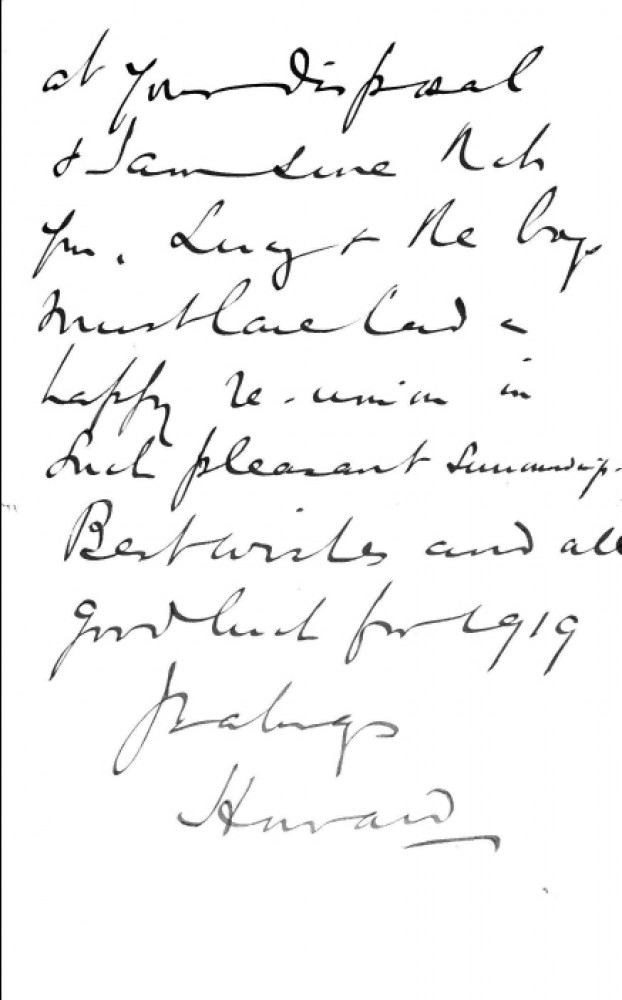 at your disposal
& I am sure that
you, Lucy & the boys
must have had a
happy re-union in
such pleasant surroundings.
Best wishes and all
good luck for 1919
Yrs always
Howard